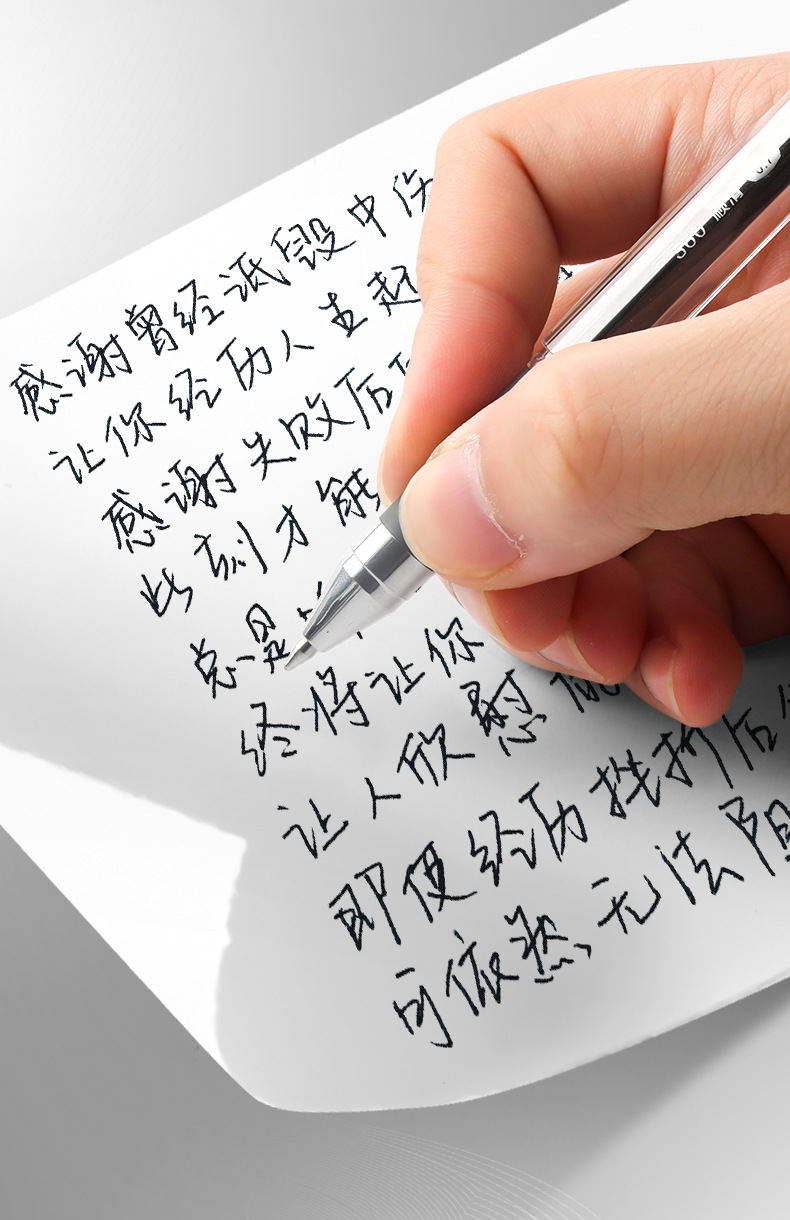 感谢曾经诋毁中伤
让你经历人生起
感谢失败后
此刻才能
总是
终将让你
让人欣慰
即便经历挫折后
可依然无法阻
0.7